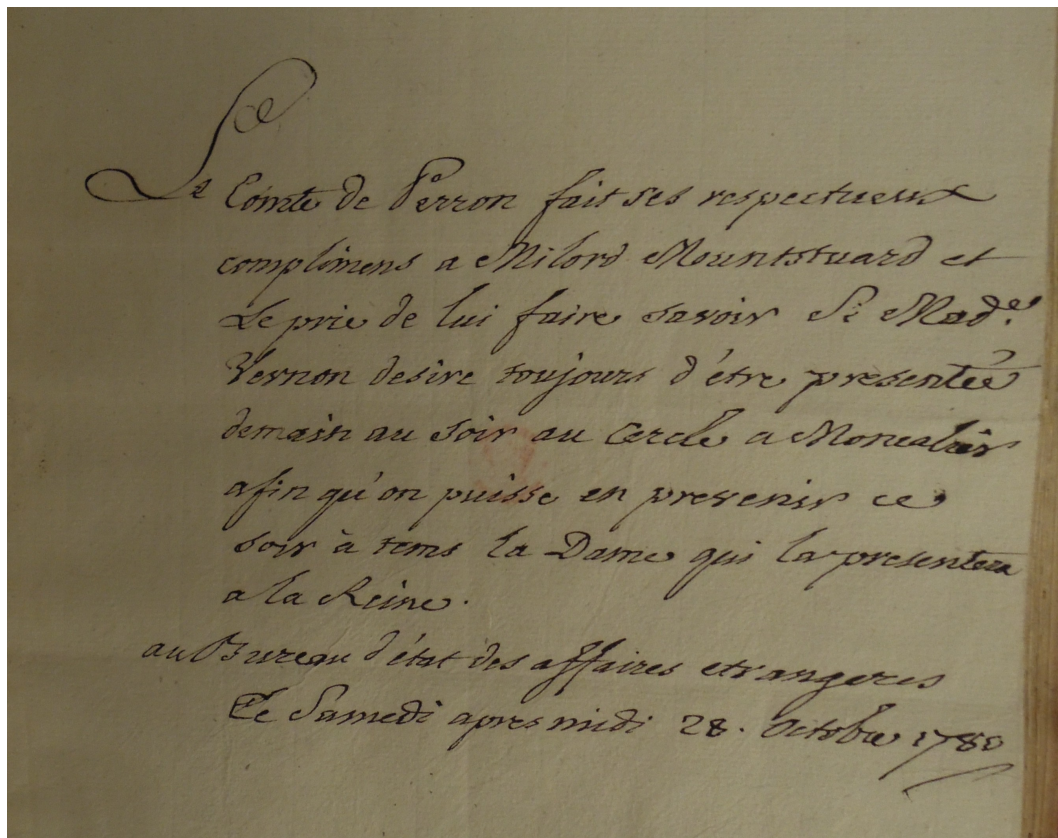 Le Comte de Perron fait ses respectueux
complimens a Milord Mountstuard et
Le prie de lui faire savoir Si Mad.e
Vernon desire toujours d'être presentée
demain au Soir au Cercle a Moncalier
afin qu'on puisse en prevenir ce
soir à tems la Dame qui la presentera
a la Reine.
au Bureau d'état des affaires etrangeres
Le Samedi apres midi 28. Octobre 1780